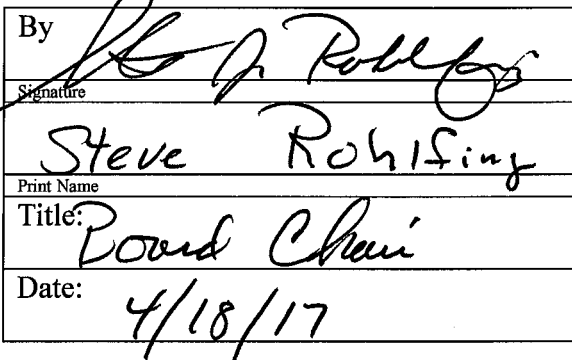 By Steve J Rohlfing
Signature
Steve Rohlfing
Print Name
Title: Board Chair
Date: 4/18/17